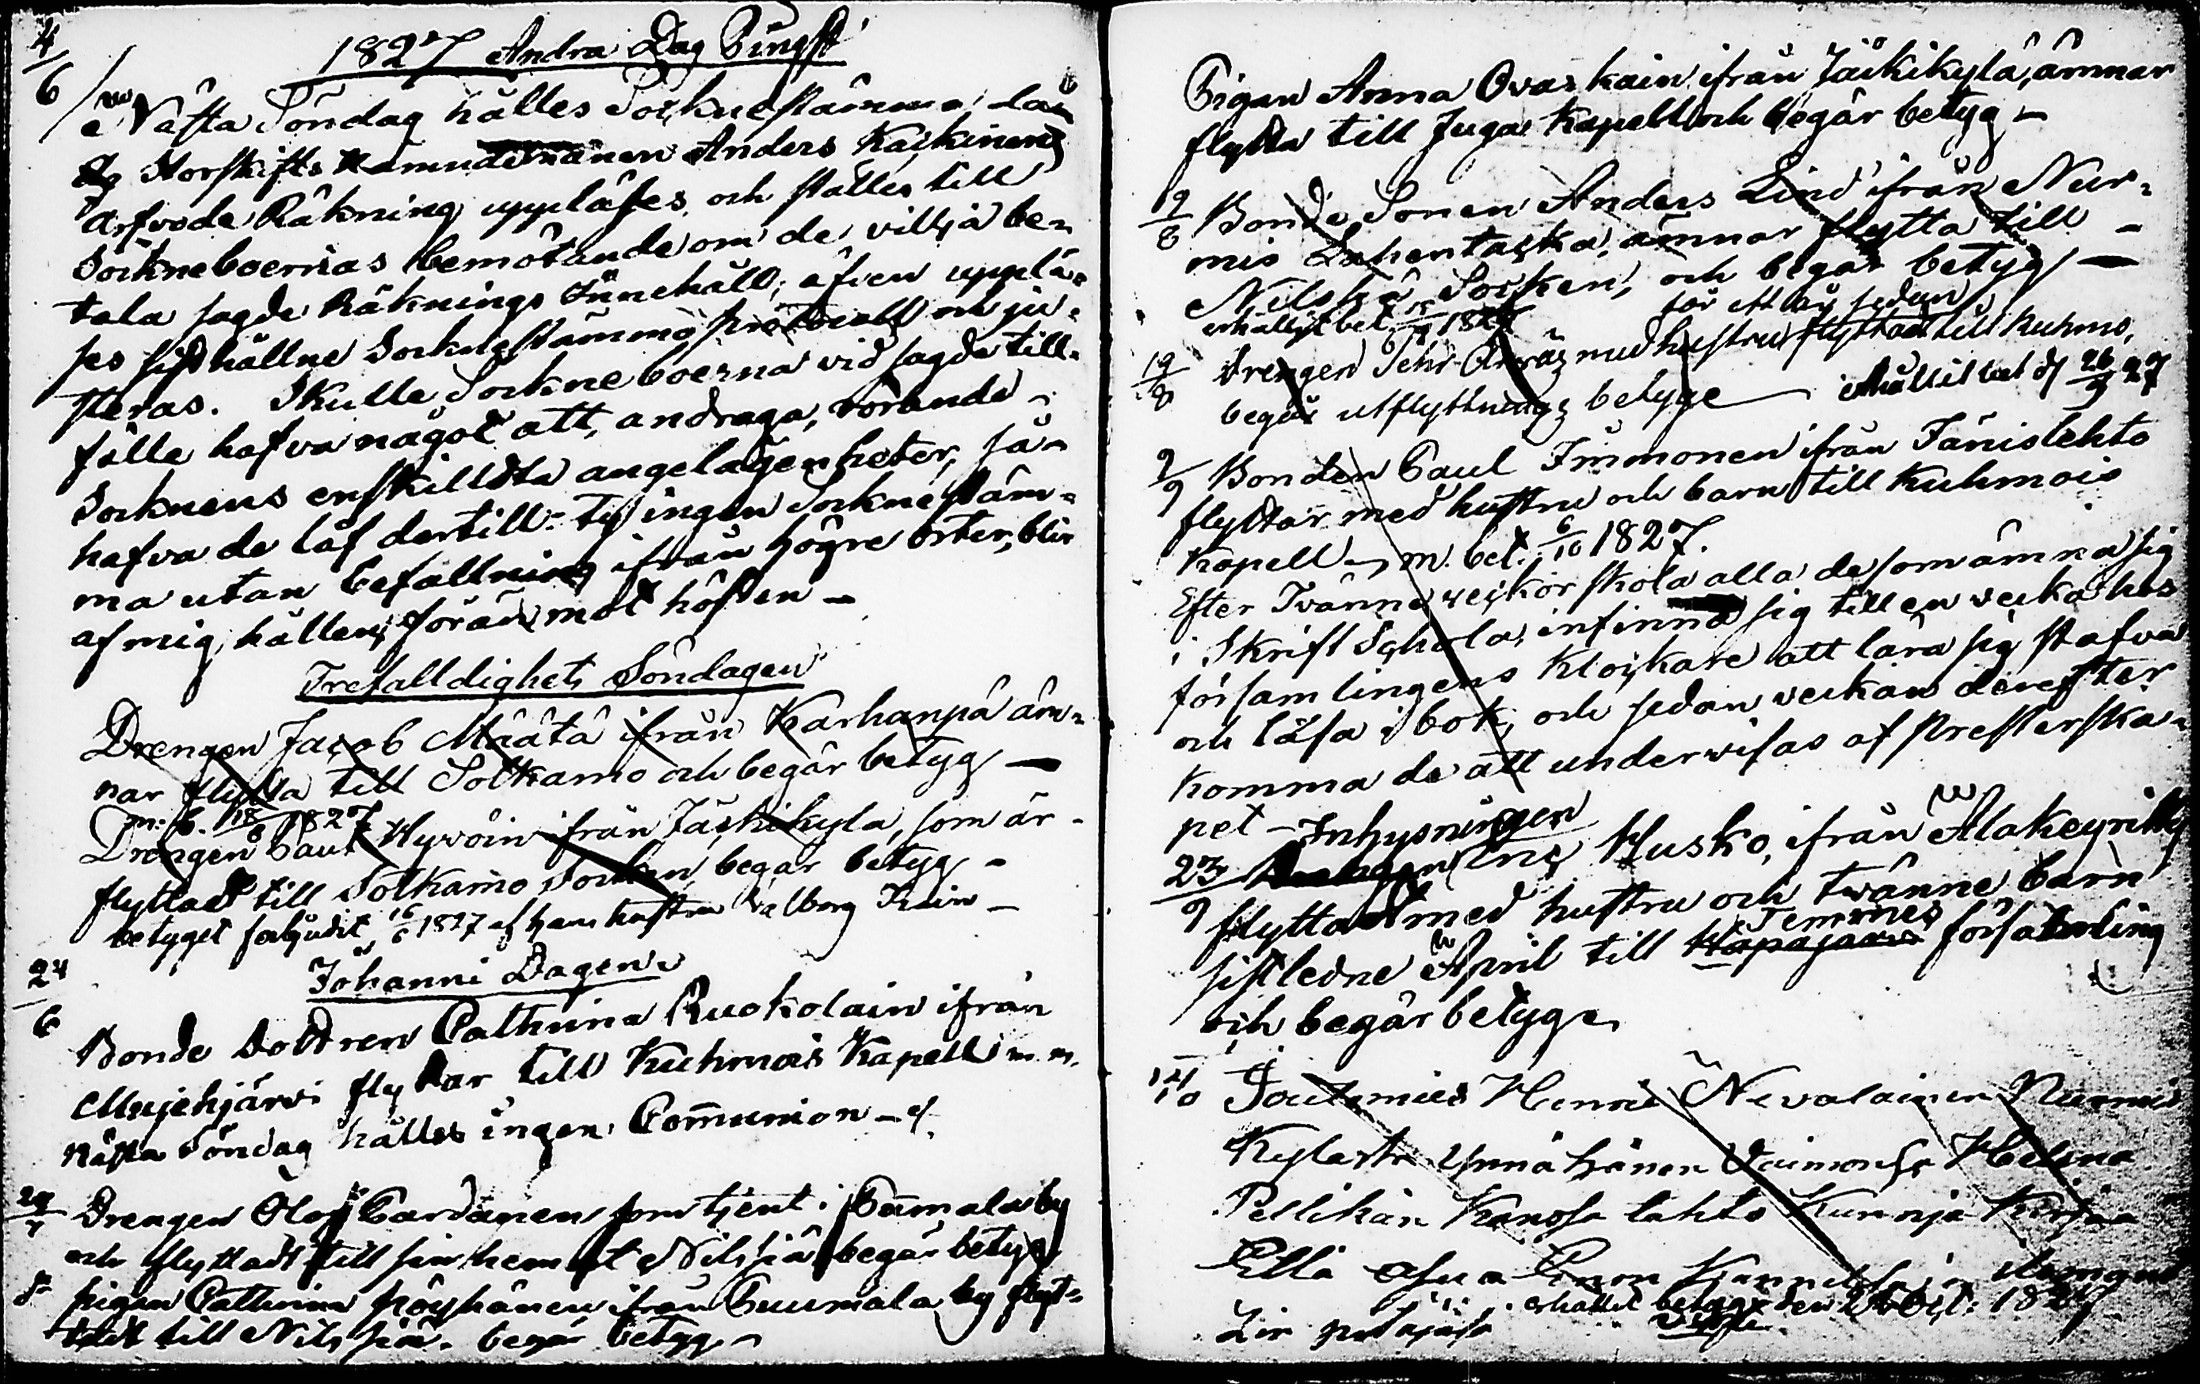 4/6
1827 Andra Dag Pingst
Nästa Söndag hålles Socknestämma, då
Storskifts Anders Kaskinens
Arfvode Räkning uppläses och ställes till
Sockneboernas bemötande om de vilja be-
tala sagde Räknings Innehåll; äfven upplä-
ses sisthållne Sockne Stämmo protocoll och ju-
steras. Skulle Sockneboerna vid sagde till-
fälle hafva något att andraga, rörande
Socknens enskillta angelägenheter, så
hafva de låf dertill: ty ingen Socknestäm-
ma utan befallning ifrån högre orter, blir
af mig hållen, förän mot hösten –
Trefalldighets Söndagen
Drengen Jacob Määtä ifrån Karhanpä äm-
nar flytta till Sotkamo och begär betyg –
m: b. 18/6 1827
Drengen Paul Hyvöin ifrån Jäskikylä, som är
flyttad till Sotkamo Socken begär betyg –
betyget 16/6 1827 af hans hustru Valborg
24/6
Johanni Dagen
Bonde Dottren Cathrina Ruokolain ifrån
Mujehjärvi flyttar till Kuhmois Kapell m. m.
Nästa Söndag hålles ingen Communion –
29/7 Drengen Olof Pardanen som tjent i Puumala by
och flyttadt till sin hemort Nilsiä begär betyg
pigan Cathrina Pöyhänen ifrån Puumala by flyt-
tadt till Nilsiä. begär betyg –
Pigan Anna Ovaskain ifrån Jäikikylä, ämnar
flytta till Juga Kapell och begär betyg –
19/8 Bonde Sonen Anders Lind ifrån Nur-
mis ämnar flytta till –
Nilsiä Socken, och begär betyg –
erhållit bet. 1827
för ett år sedan
19/8 Drengen Pehr med hustru flyttadt till Kuhmo,
begär utflyttnings betyge – erhållit bet d 26/9 27
9/9 Bonden Paul Immonen ifrån Jänislehto
flyttar med hustru och barn till Kuhmois
Kapell – m. bet. 6/10 1827.
Efter Tvänne veckor skola alla de som ämna sig
i Skrift Schola, infinna sig till en vecka hos
församlingens Klockare att lära sig stafva
och läsa i bok, och sedan veckan derefter
komma de att undervisas af Presterska-
pet – Inhysningen
23/9 Husko, ifrån Alakeyritty
flyttadt med hustru och tvänne barn
sistledne April till församling
och begär betyge
14/10 Joutomies Henric Nevalainen Nurmis
Kylästä Ynnä hänen Vaimonsa Helena
Pellikän Kanssa tahto
Ellä
erhållit betyge den Oct: 1827